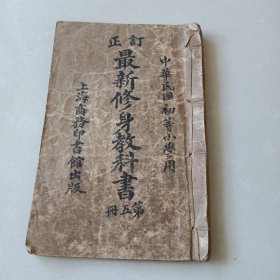 訂正
中華民國初等小學用
最新修身教科書
第五冊
上海商務印書館出版